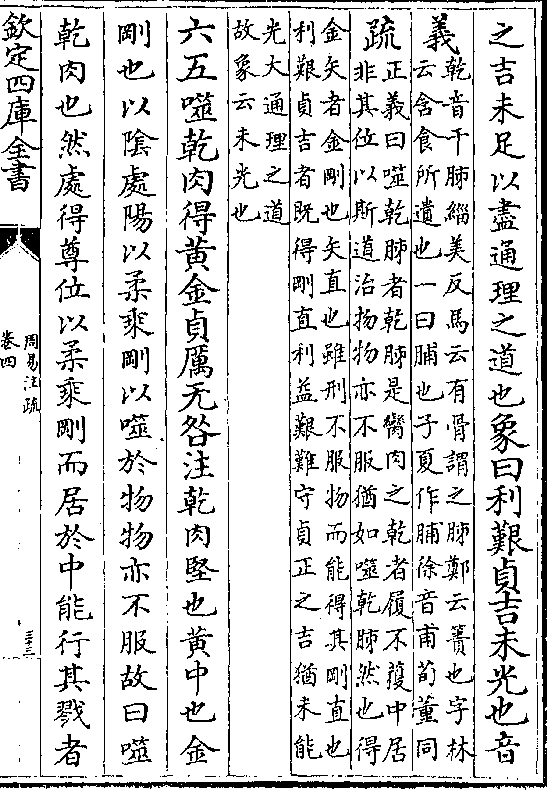 之吉未足以盡通理之道也象曰利艱貞吉未光也音
義乾音干胏緇美反馬云有骨謂之胏鄭云簀也字林
云含食所遺也一曰脯也子夏作脯徐音甫荀董同
疏正義曰噬乾胏者乾胏是臠肉之乾者履不獲中居
非其位以斯道治物物亦不服猶如噬乾胏然也得
金矢者金剛也矢直也雖刑不服物而能得其剛直也
利艱貞吉者既得剛直利益艱難守貞正之吉猶未能
光大通理之道
故象云未光也
六五噬乾肉得黃金貞厲无咎注乾肉堅也黃中也金
剛也以陰處陽以柔乘剛以噬於物物亦不服故曰噬
乾肉也然處得尊位以柔乘剛而居於中能行其戮者
欽定四庫全書
周易注疏
卷四
三十三